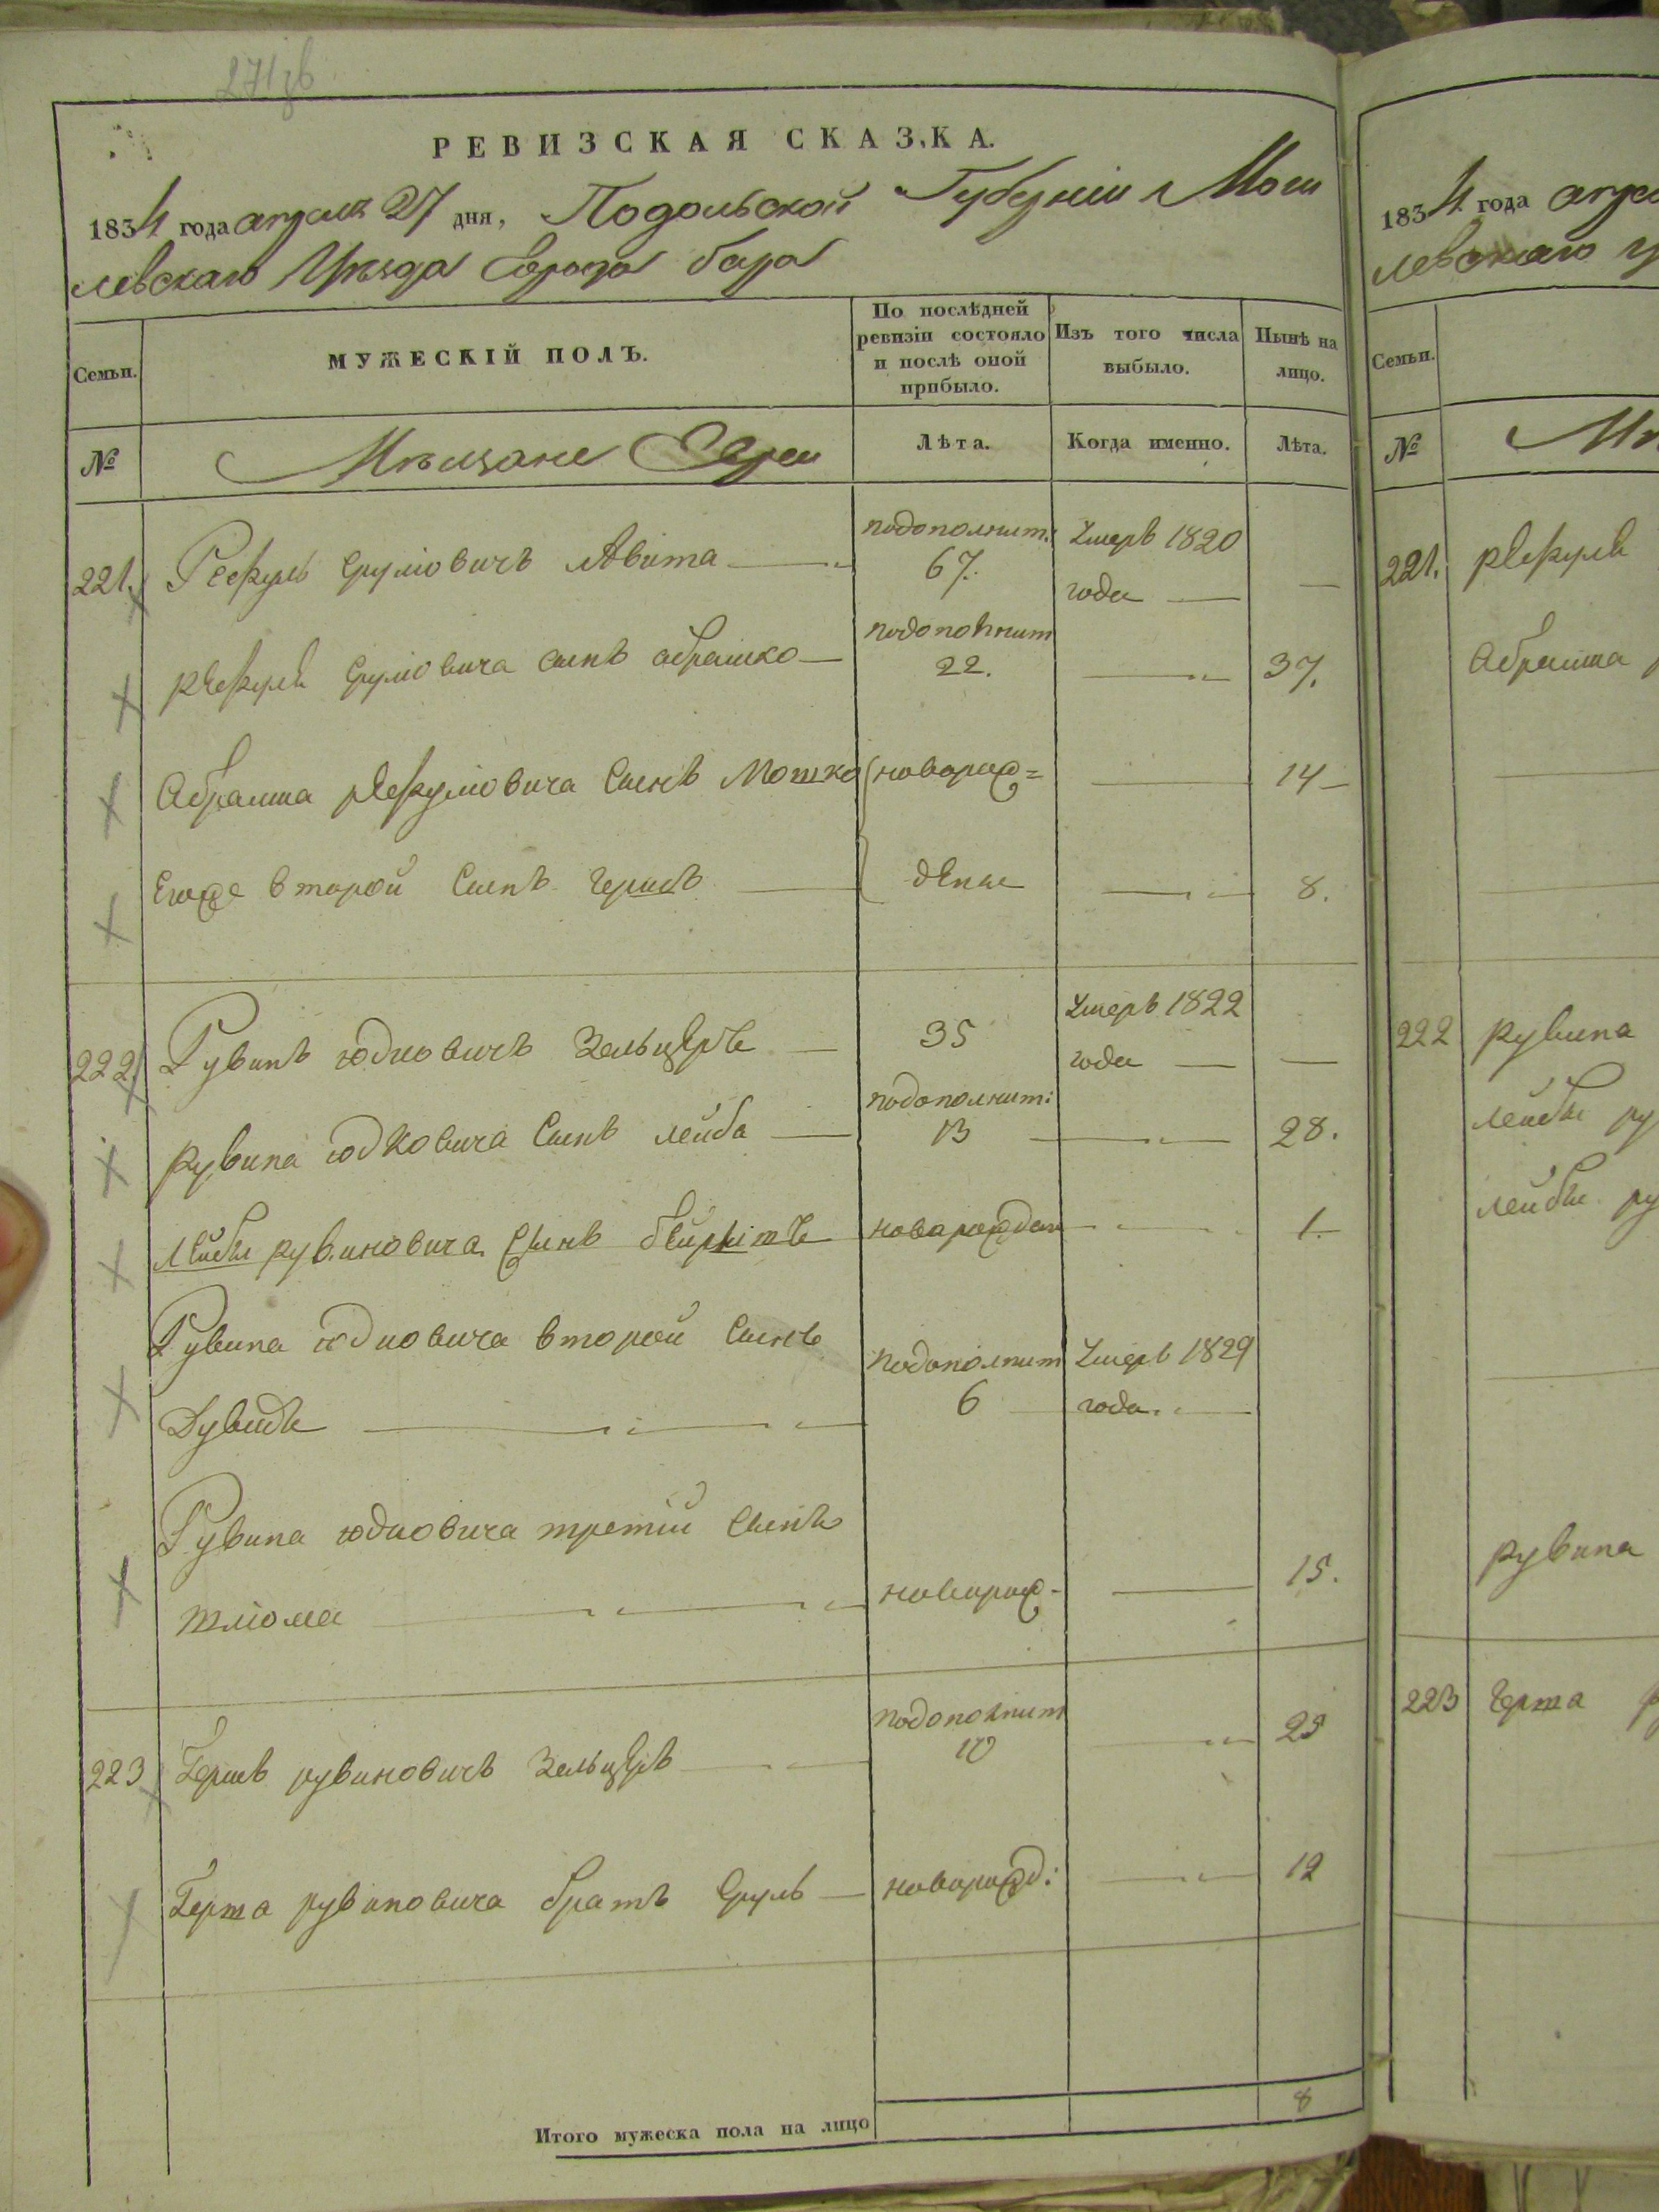 271зв
РЕВИЗСКАЯ СКАЗКА.
1834 года апреля 27 дня, Подольской Губерніи Моги
левскаго Уѣзда Города бара
Семьи.
МУЖЕСКІЙ ПОЛЪ.
По послѣдней ревизіи состояло и послѣ оной прибыло.
Изъ того числа выбыло.
Нынѣ на лицо.
№
Мѣщане Евреи
Лѣта.
Когда именно.
Лѣта.
221. Срулiовичъ подополнит: 67. Умеръ 1820 года —
Срулiовича Сынъ абрашко — подополнит 22. — 37.
Абрашка Сынъ Мошко новорож= — 14 —
Егоже второй Сынъ Гершъ — дѣные — 8.
222. Рувинъ юдковичъ Зельцеръ — 35 Умеръ 1822 года —
Рувина юдковича Сынъ лейба — подополнит: 13 — 28.
Лейбы рувиновича Сынъ новорожден — 1.
Рувина юдковича второй Сынъ
Дувидъ — подополнит 6 Умеръ 1829 года. —
Рувина юдковича третій Сынъ
шлiома — новорож- — 15.
223 Гершъ рувиновичъ Зельцеръ — подополнит 10 — 25
Герша рувиновича братъ Сруль — новорожд: — 12
Итого мужеска пола на лицо 8
1834 года апре
левскаго у
Семьи.
№
221.
Абрашка
222 рувина
лейбы ру
лейбы ру
рувина
223 Герша